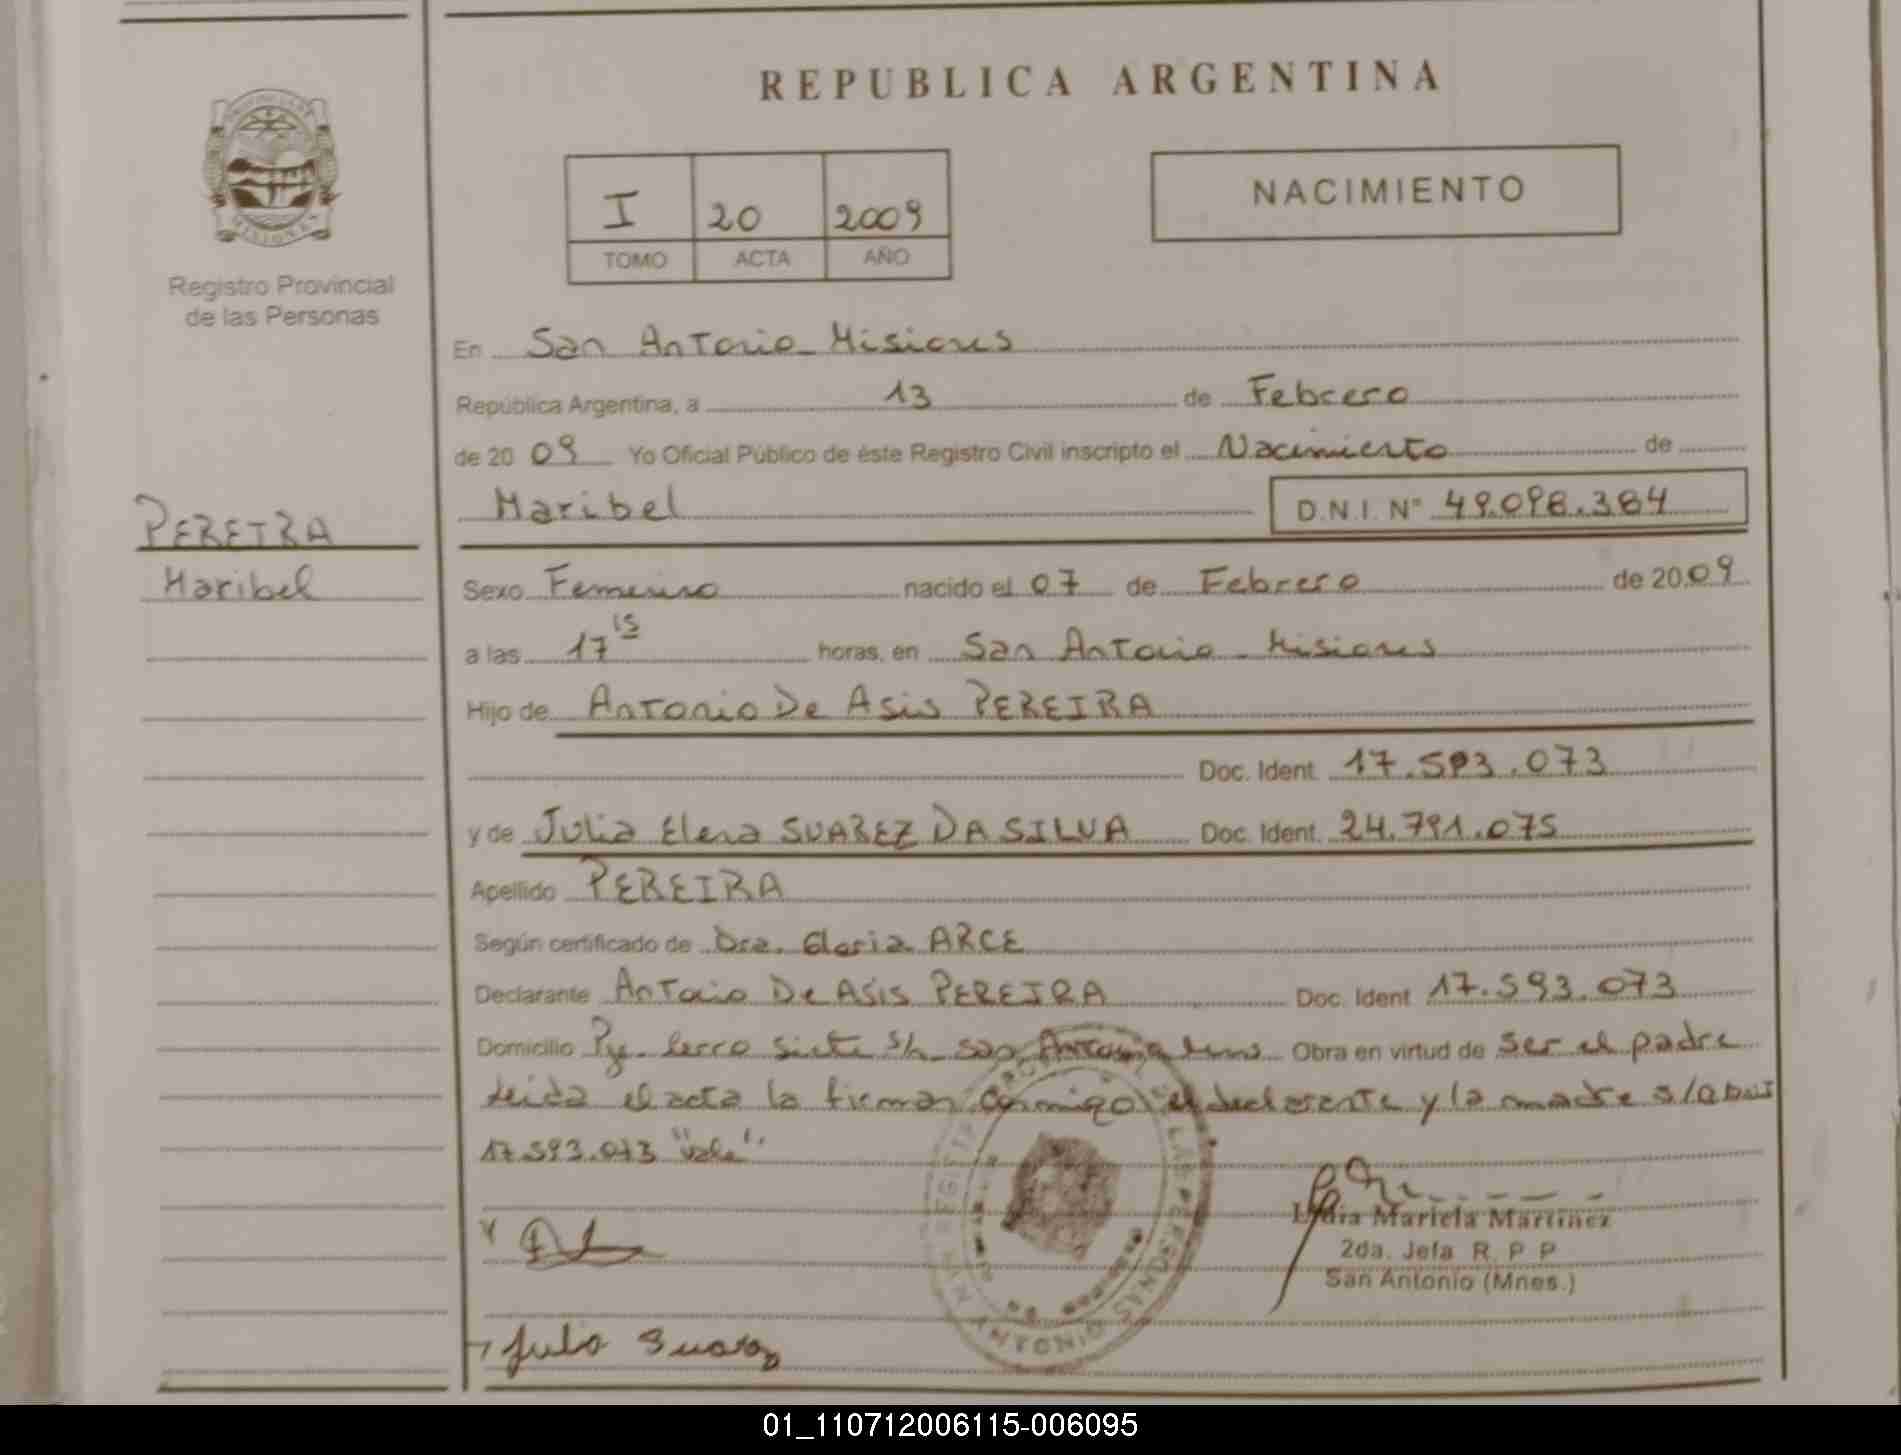 REPUBLICA ARGENTINA
PROVINCIA DE
MISIONES
Registro Provincial
de las Personas
I 20 2009
TOMO ACTA AÑO
NACIMIENTO
En San Antonio Misiones
República Argentina, a 13 de Febrero
de 20 09 Yo Oficial Público de éste Registro Civil inscripto el Nacimiento de
Maribel D.N.I. Nº 49.098.384
PEREIRA
Maribel
Sexo Femenino nacido el 07 de Febrero de 20 09
a las 17 15 horas, en San Antonio - Misiones
Hijo de Antonio De Asis PEREIRA
Doc. Ident. 17.593.073
y de Julia Elena SUAREZ DA SILVA Doc. Ident. 24.791.075
Apellido PEREIRA
Según certificado de Dra. Gloria ARCE
Declarante Antonio De Asis PEREIRA Doc. Ident 17.593.073
Domicilio Pje. Cerro Siete S/n San Antonio Mnes Obra en virtud de ser el padre
Leida el acta la firman conmigo el declarante y la madre s/a DNI
17.593.073 "Vale".
Lydia Mariela Martinez
2da. Jefa R. P. P.
San Antonio (Mnes.)
REGISTRO PROVINCIAL DE LAS PERSONAS
SAN ANTONIO
Julia Suarez
01_110712006115-006095